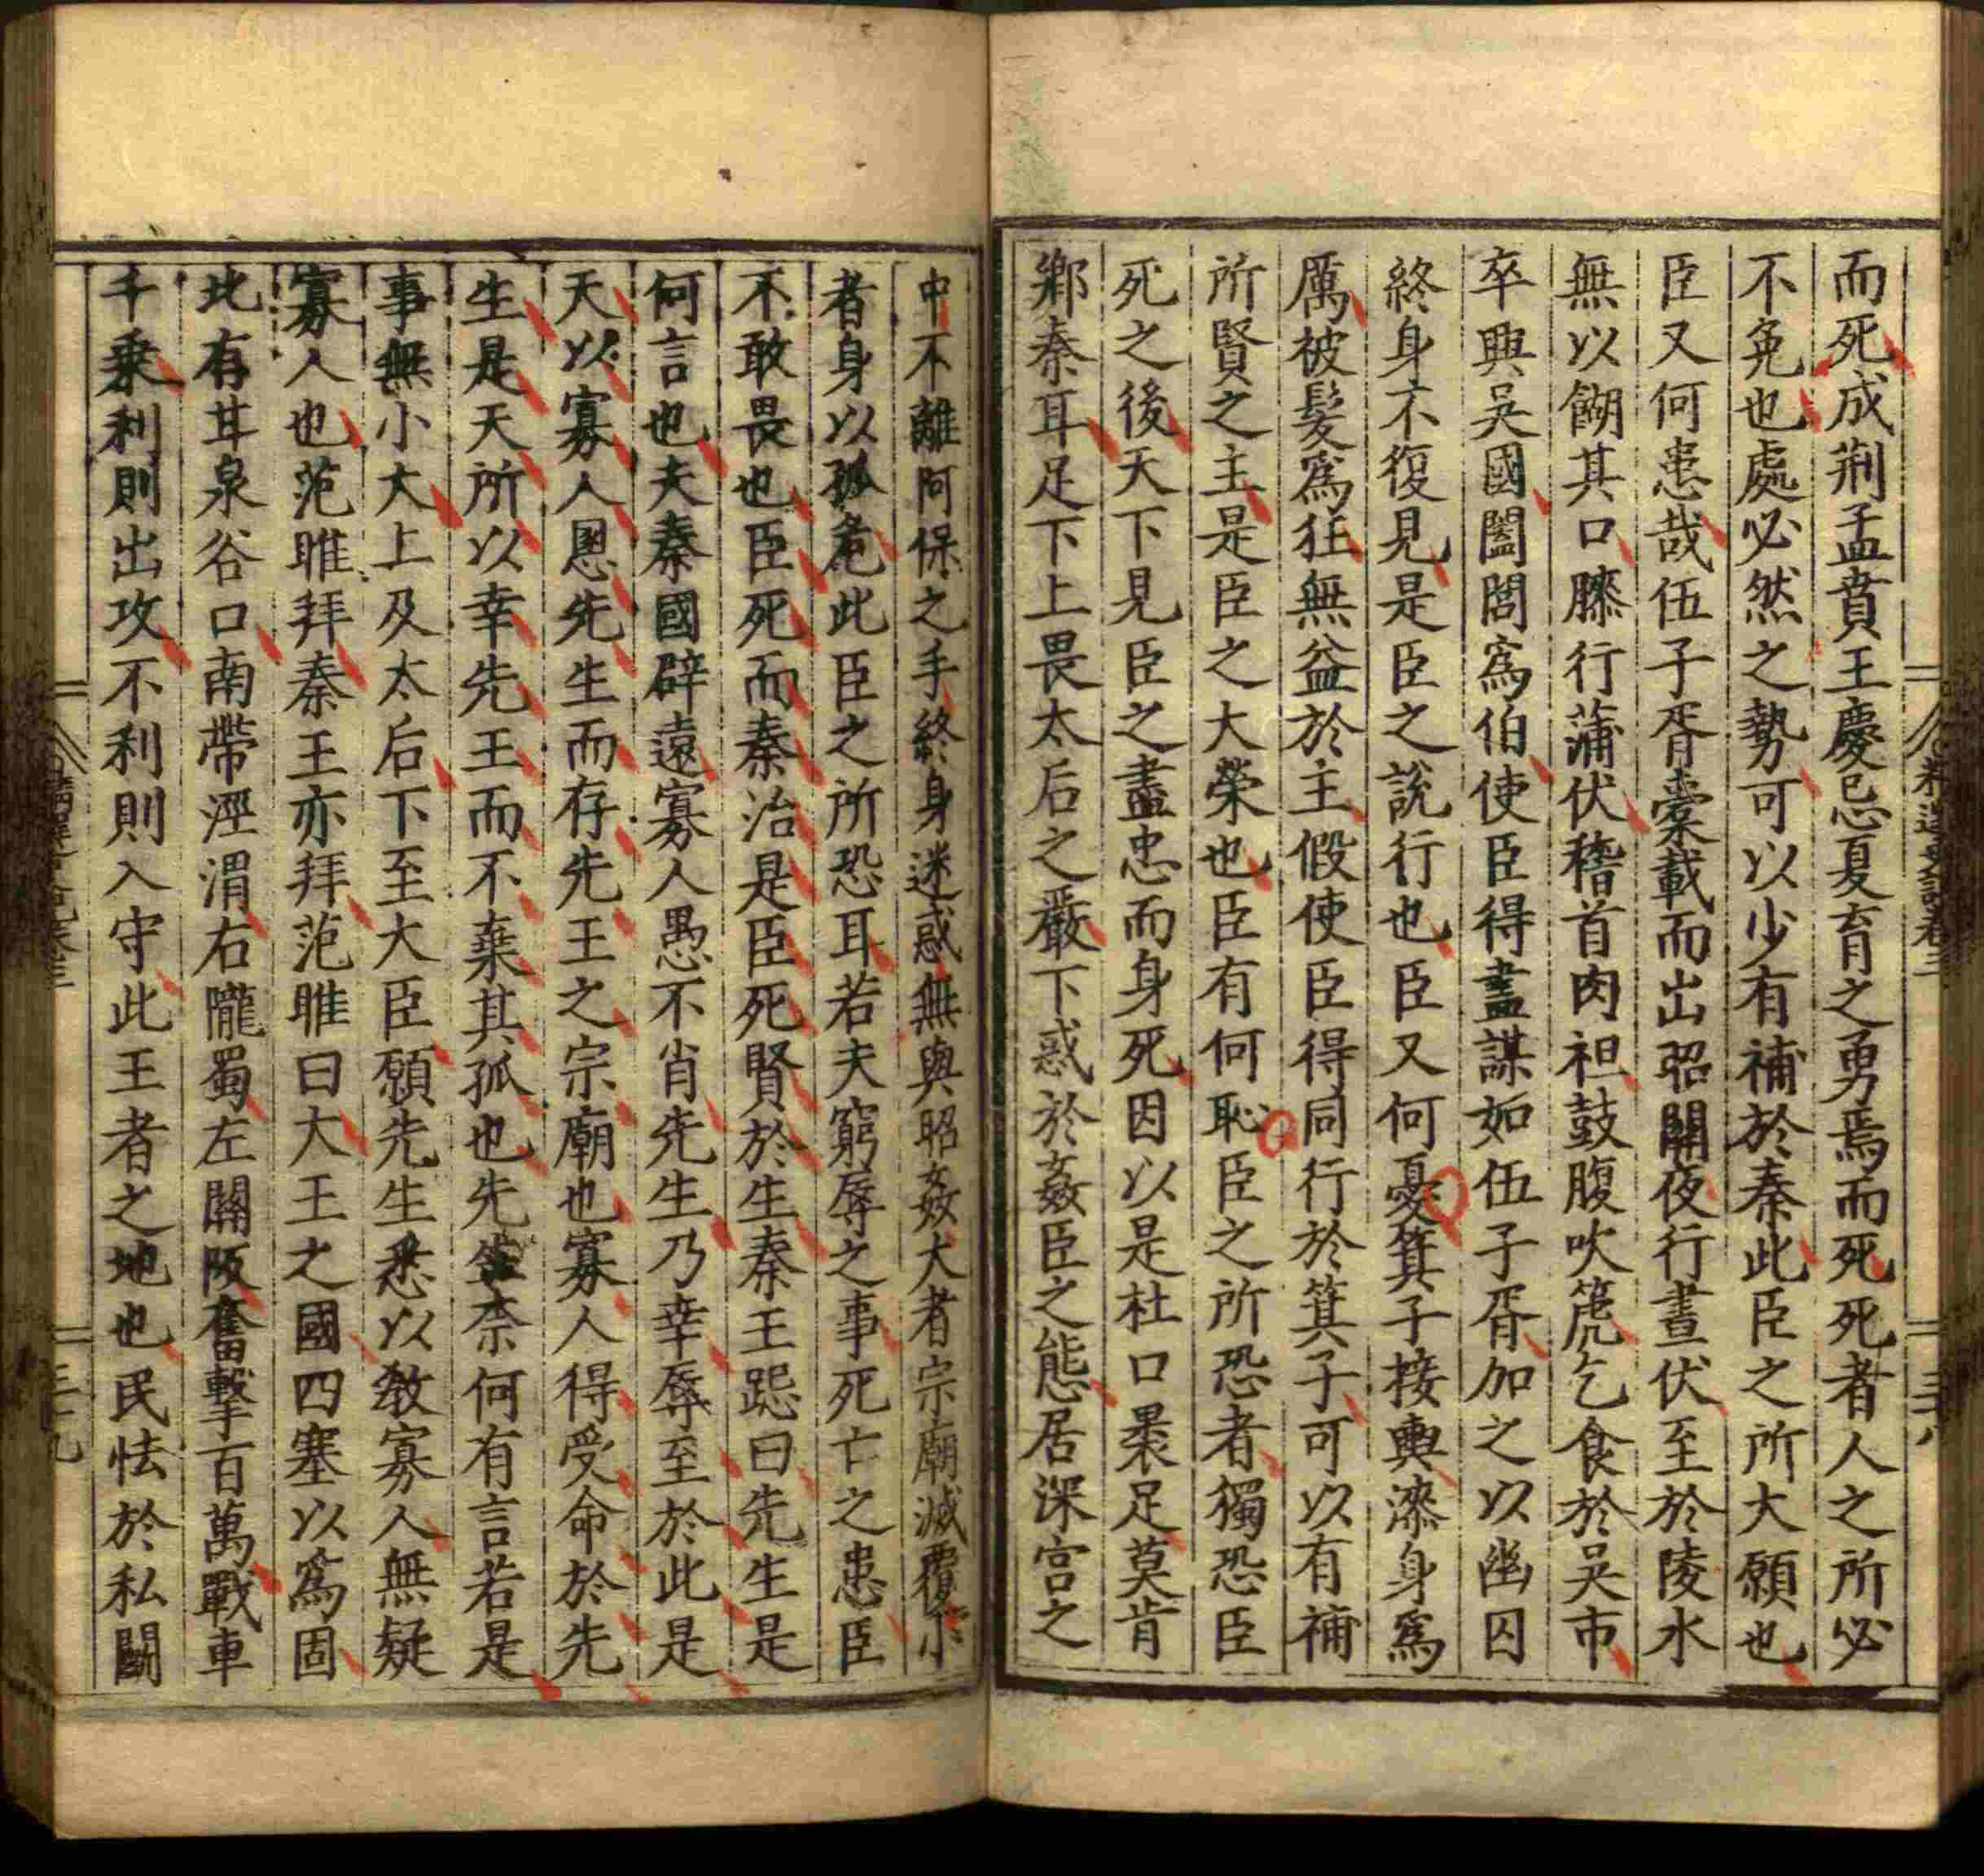 而死成荊孟賁王慶忌夏育之勇焉而死死者人之所必
不免也處必然之勢可以少有補於秦此臣之所大願也
臣又何患哉伍子胥槖載而出昭關夜行晝伏至於陵水
無以餬其口膝行蒲伏稽首肉袒鼓腹吹篪乞食於吳市
卒興吳國闔閭爲伯使臣得盡謀如伍子胥加之以幽囚
終身不復見是臣之說行也臣又何憂箕子接輿漆身爲
厲被髮爲狂無益於主假使臣得同行於箕子可以有補
所賢之主是臣之大榮也臣有何恥臣之所恐者獨恐臣
死之後天下見臣之盡忠而身死因以是杜口褁足莫肯
鄉秦耳足下上畏太后之嚴下惑於姦臣之態居深宮之
中不離阿保之手終身迷惑無與昭姦大者宗廟滅覆小
者身以孤危此臣之所恐耳若夫窮辱之事死亡之患臣
不敢畏也臣死而秦治是臣死賢於生秦王跽曰先生是
何言也夫秦國辟遠寡人愚不肖先生乃幸辱至於此是
天以寡人慁先生而存先王之宗廟也寡人得受命於先
生是天所以幸先王而不棄其孤也先生奈何有言若是
事無小大上及太后下至大臣願先生悉以敎寡人無疑
寡人也范睢拜秦王亦拜范睢曰大王之國四塞以爲固
北有甘泉谷口南帶涇渭右隴蜀左關阪奮擊百萬戰車
千乗利則出攻不利則入守此王者之地也民怯於私鬬
三十八
三十九